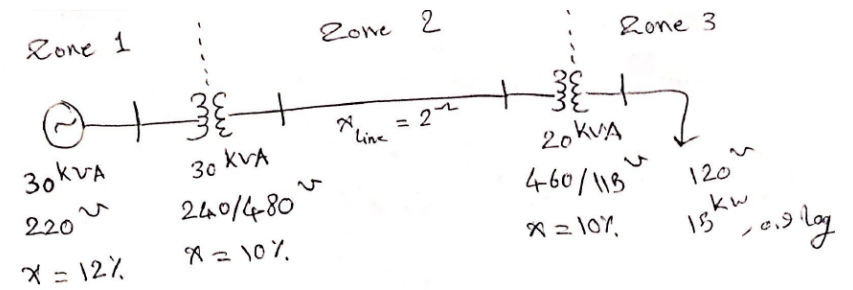 Zone 1
Zone 2
Zone 3
~
30 kVA
220 v
x = 12%
30 kVA
240/480 v
x = 10%
x line = 2 Ω
20 kVA
460/115 v
x = 10%
120 v
15 kW, 0.9 lag